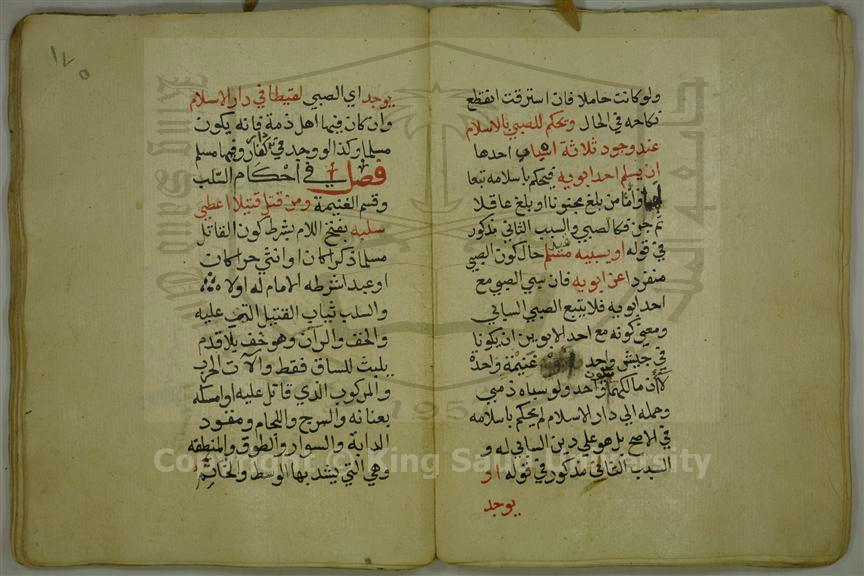 ولو كانت حاملا فان استرقت انقطع
نكاحه في الحال ويحكم للصبي بالاسلام
عند وجود ثلاثة اسباب احدها
ان يسلم احد ابويه فيحكم باسلامه تبعا
لهما وأما من بلغ مجنونا او بلغ عاقلا
ثم جن فكالصبي والسبب الثاني مذكور
في قوله او يسبيه مسلم حال كون الصبي
منفردا عن ابويه فان سبي الصبي مع
احد ابويه فلا يتبع الصبي السابي
ومعنى كونه مع احد الابوين ان يكونا
في جيش واحد غنيمة واحدة
لا أن مالكهما يكون واحد ولو سباه ذمي
وحمله الى دار الاسلام لم يحكم باسلامه
في الاصح بل هو على دين السابي له و
السبب الثالث مذكور في قوله او
يوجد
١٧٥
يوجد اي الصبي لقيطا في دار الاسلام
وان كان فيها اهل ذمة فانه يكون
مسلما وكذا لو وجد في دار كفار وفيها مسلم
فصل في أحكام السلب
وقسم الغنيمة ومن قتل قتيلا اعطي
سلبه بفتح اللام بشرط كون القاتل
مسلما ذكرا كان او انثى حرا كان
او عبدا شرطه الامام له اولا
والسلب ثياب القتيل التي عليه
والخف والرآن وهو خف بلا قدم
يلبث للساق فقط وآلات الحرب
والمركوب الذي قاتل عليه او امسكه
بعنانه والسرج واللجام ومقود
الدابة والسوار والطوق والمنطقة
وهي التي يشد بها الوسط والخاتم
Copyright © King Saud University
195